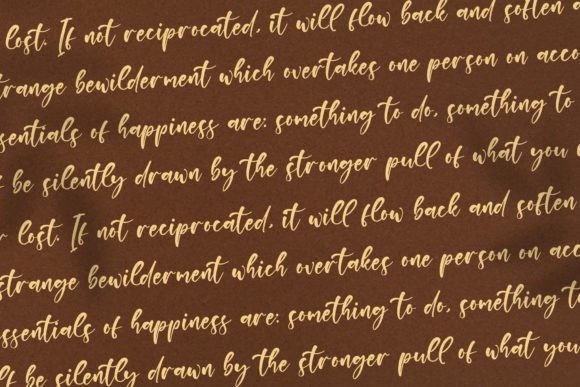 lost. If not reciprocated, it will flow back and soften a
trange bewilderment which overtakes one person on acco
sentials of happiness are: something to do, something to
be silently drawn by the stronger pull of what you
r lost. If not reciprocated, it will flow back and soften
strange bewilderment which overtakes one person on acc
essentials of happiness are: something to do, something t
lf be silently drawn by the stronger pull of what you